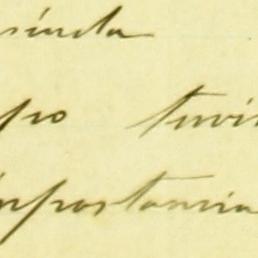 ainda
po tivi
importancia